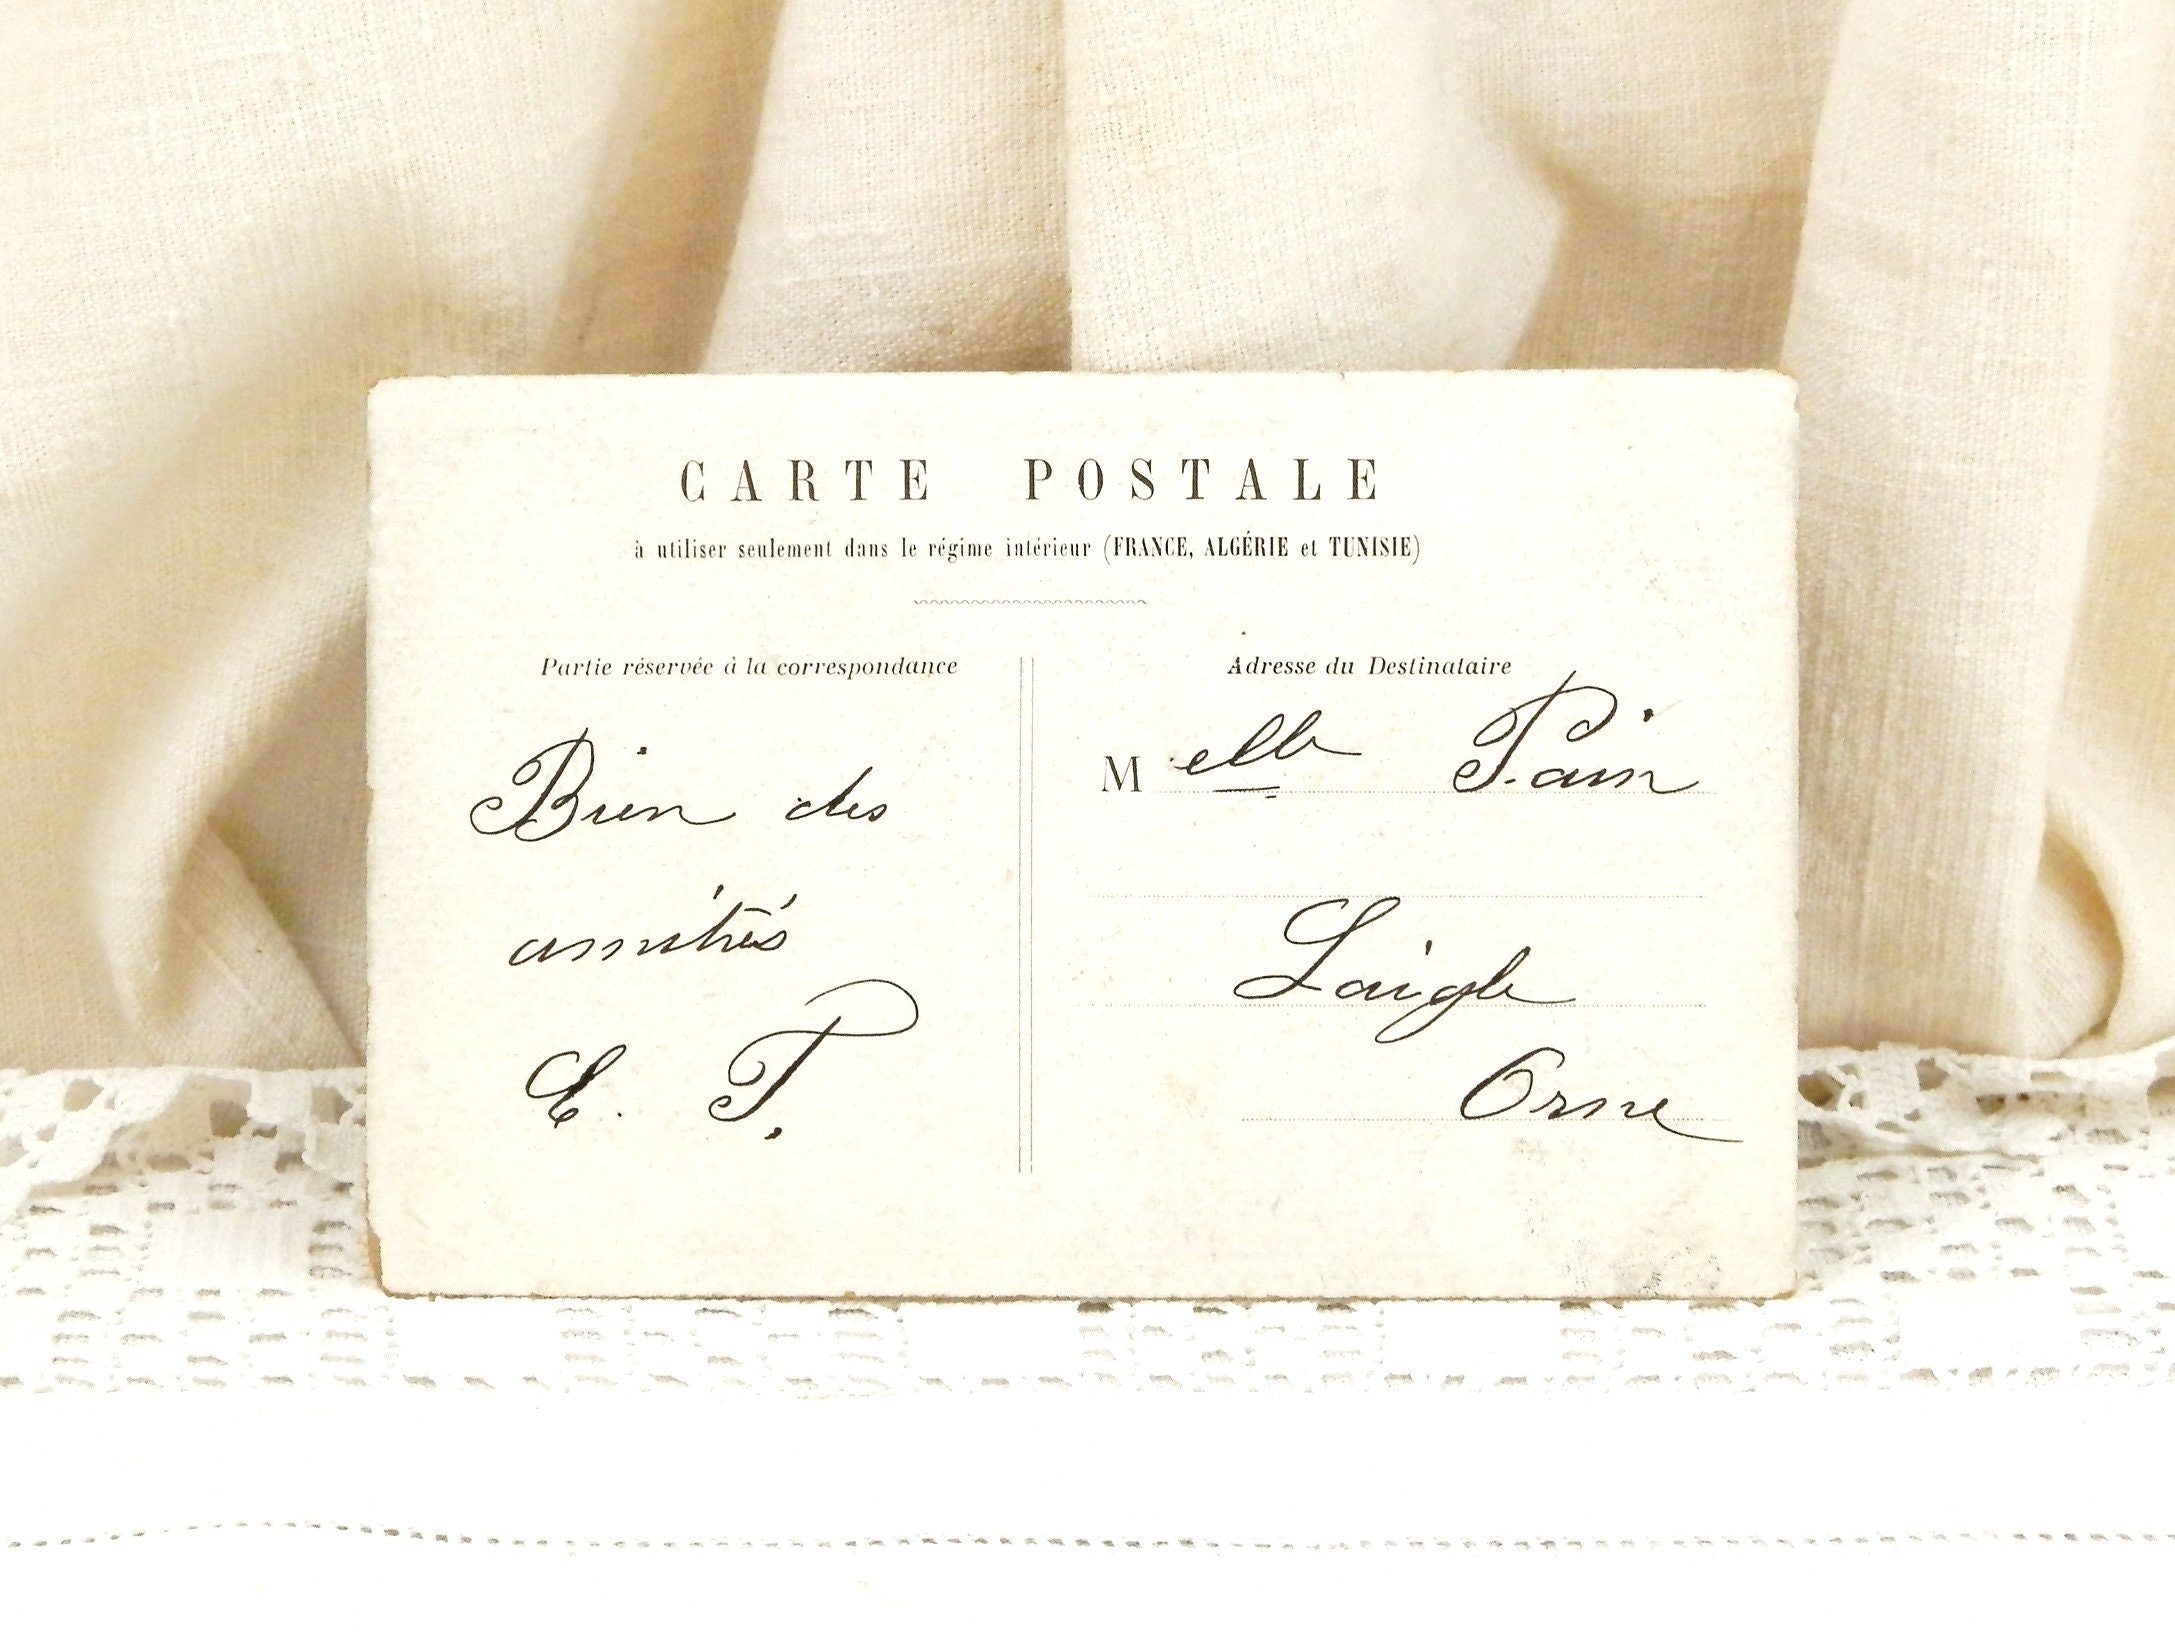 CARTE POSTALE
à utiliser seulement dans le régime intérieur (FRANCE, ALGÉRIE et TUNISIE)
Partie réservée à la correspondance
Bien des
amitiés
E. T.
Adresse du Destinataire
Melle Pain
Laigle
Orne